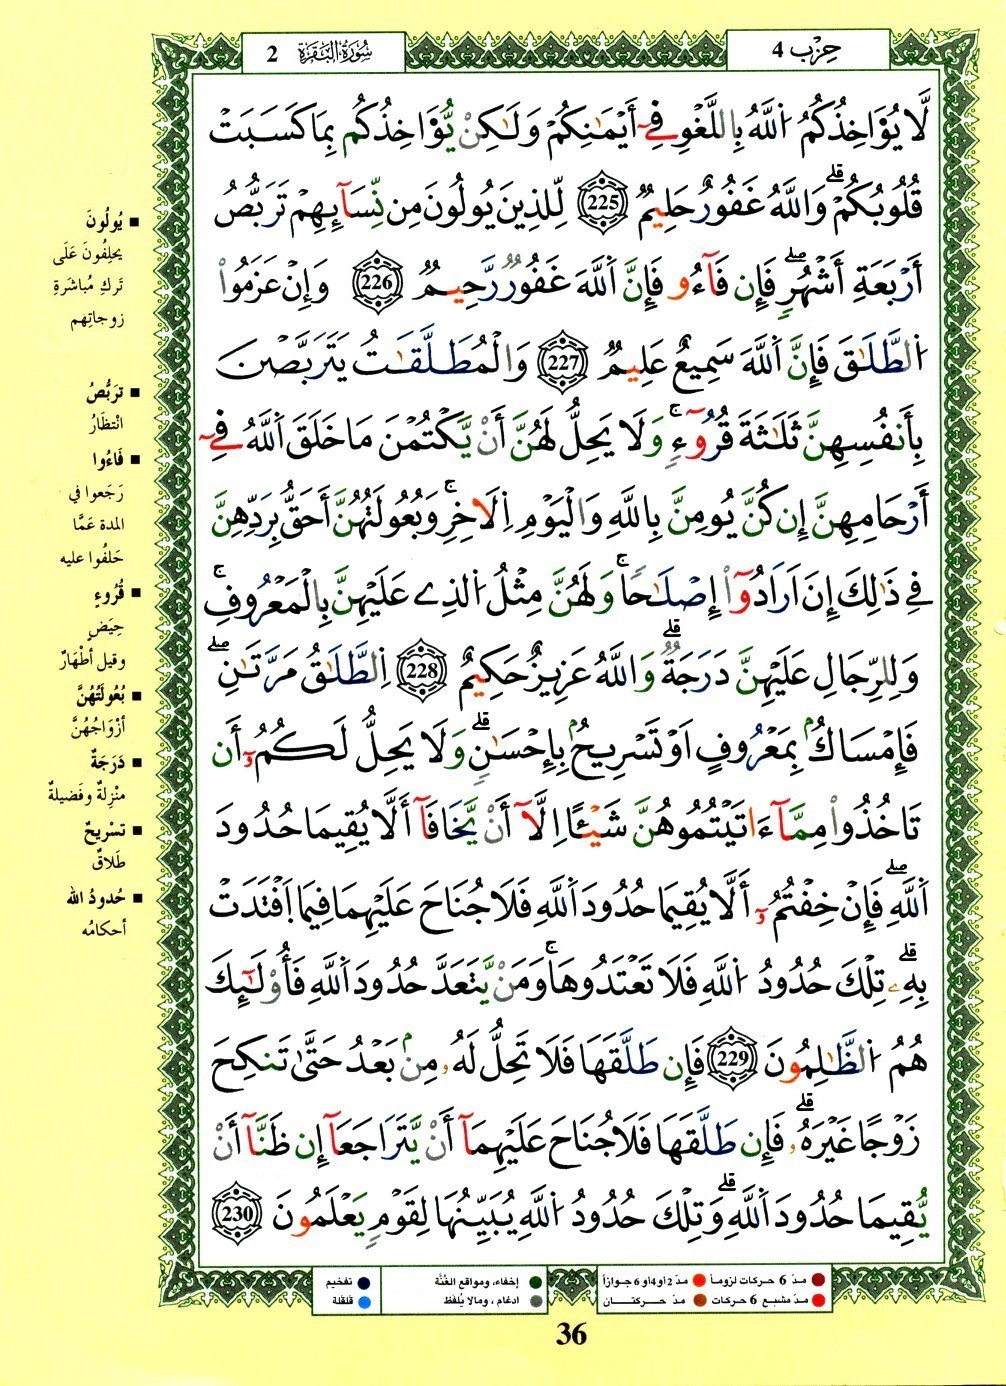 سُورَةُ البَقَرَةِ 2
حِزْب 4
لَّا يُؤَاخِذُكُمُ اُ۬للَّهُ بِاللَّغْوِ فِےٓ أَيْمَٰنِكُمْ وَلَٰكِنْ يُّؤَاخِذُكُم بِمَا كَسَبَتْ
قُلُوبُكُمْۗ وَاللَّهُ غَفُورٌ حَلِيمٌ 225 لِّلذِينَ يُولُونَ مِن نِّسَآئِهِمْ تَرَبُّصُ
أَرْبَعَةِ أَشْهُرٍۖ فَإِن فَآءُو فَإِنَّ اَ۬للَّهَ غَفُورٌ رَّحِيمٌ 226 وَإِنْ عَزَمُواْ
اُ۬لطَّلَٰقَ فَإِنَّ اَ۬للَّهَ سَمِيعٌ عَلِيمٌ 227 وَالْمُطَلَّقَٰتُ يَتَرَبَّصْنَ
بِأَنفُسِهِنَّ ثَلَٰثَةَ قُرُوٓءٍۚ وَلَا يَحِلُّ لَهُنَّ أَنْ يَّكْتُمْنَ مَا خَلَقَ اَ۬للَّهُ فِےٓ
أَرْحَامِهِنَّ إِن كُنَّ يُومِنَّ بِاللَّهِ وَالْيَوْمِ اِ۬لَاخِرِۚ وَبُعُولَتُهُنَّ أَحَقُّ بِرَدِّهِنَّ
فِے ذَٰلِكَ إِنَ اَرَادُوٓاْ إِصْلَٰحًاۚ وَلَهُنَّ مِثْلُ اُ۬لذِے عَلَيْهِنَّ بِالْمَعْرُوفِۚ
وَلِلرِّجَالِ عَلَيْهِنَّ دَرَجَةٌۗ وَاللَّهُ عَزِيزٌ حَكِيمٌ 228 اِ۬لطَّلَٰقُ مَرَّتَٰنِۖ
فَإِمْسَاكُۢ بِمَعْرُوفٍ اَوْ تَسْرِيحُۢ بِإِحْسَٰنٍۗ وَلَا يَحِلُّ لَكُمُۥٓ أَن
تَاخُذُواْ مِمَّآ ءَاتَيْتُمُوهُنَّ شَيْـًٔا اِلَّآ أَنْ يَّخَافَآ أَلَّا يُقِيمَا حُدُودَ
اَ۬للَّهِۖ فَإِنْ خِفْتُمُۥٓ أَلَّا يُقِيمَا حُدُودَ اَ۬للَّهِ فَلَا جُنَاحَ عَلَيْهِمَا فِيمَا اَ۪فْتَدَتْ
بِهِۦۗ تِلْكَ حُدُودُ اُ۬للَّهِ فَلَا تَعْتَدُوهَاۚ وَمَنْ يَّتَعَدَّ حُدُودَ اَ۬للَّهِ فَأُوْلَٰٓئِكَ
هُمُ اُ۬لظَّٰلِمُونَ 229 فَإِن طَلَّقَهَا فَلَا تَحِلُّ لَهُۥ مِنۢ بَعْدُ حَتَّىٰ تَنكِحَ
زَوْجًا غَيْرَهُۥۗ فَإِن طَلَّقَهَا فَلَا جُنَاحَ عَلَيْهِمَآ أَنْ يَّتَرَاجَعَآ إِن ظَنَّآ أَنْ
يُّقِيمَا حُدُودَ اَ۬للَّهِۗ وَتِلْكَ حُدُودُ اُ۬للَّهِ يُبَيِّنُهَا لِقَوْمٍ يَعْلَمُونَ 230
■ يُولُونَ
يحلِفُونَ عَلَى
تَركِ مُباشَرَةِ
زوجاتِهم
■ تَرَبُّصُ
انْتظَارُ
■ فَاءُوا
رَجَعوا في
المدة عَمَّا
حَلفُوا عليه
■ قُرُوءٍ
حِيَضٍ
وقيل أطْهَارٌ
■ بُعُولَتُهُنَّ
أزْوَاجُهُنَّ
■ دَرَجَةٌ
منْزِلةٌ وفَضيلةٌ
■ تسْريحٌ
طَلاقٌ
■ حُدودُ الله
أحكامُه
مدّ 6 حركات لزوماً مدّ 2 أو 4 أو 6 جوازاً
مدّ مشبع 6 حركات مدّ حركتان
إخفاء، ومواقع الغُنَّة
ادغام ، ومالا يُلفظ
تفخيم
قلقلة
36